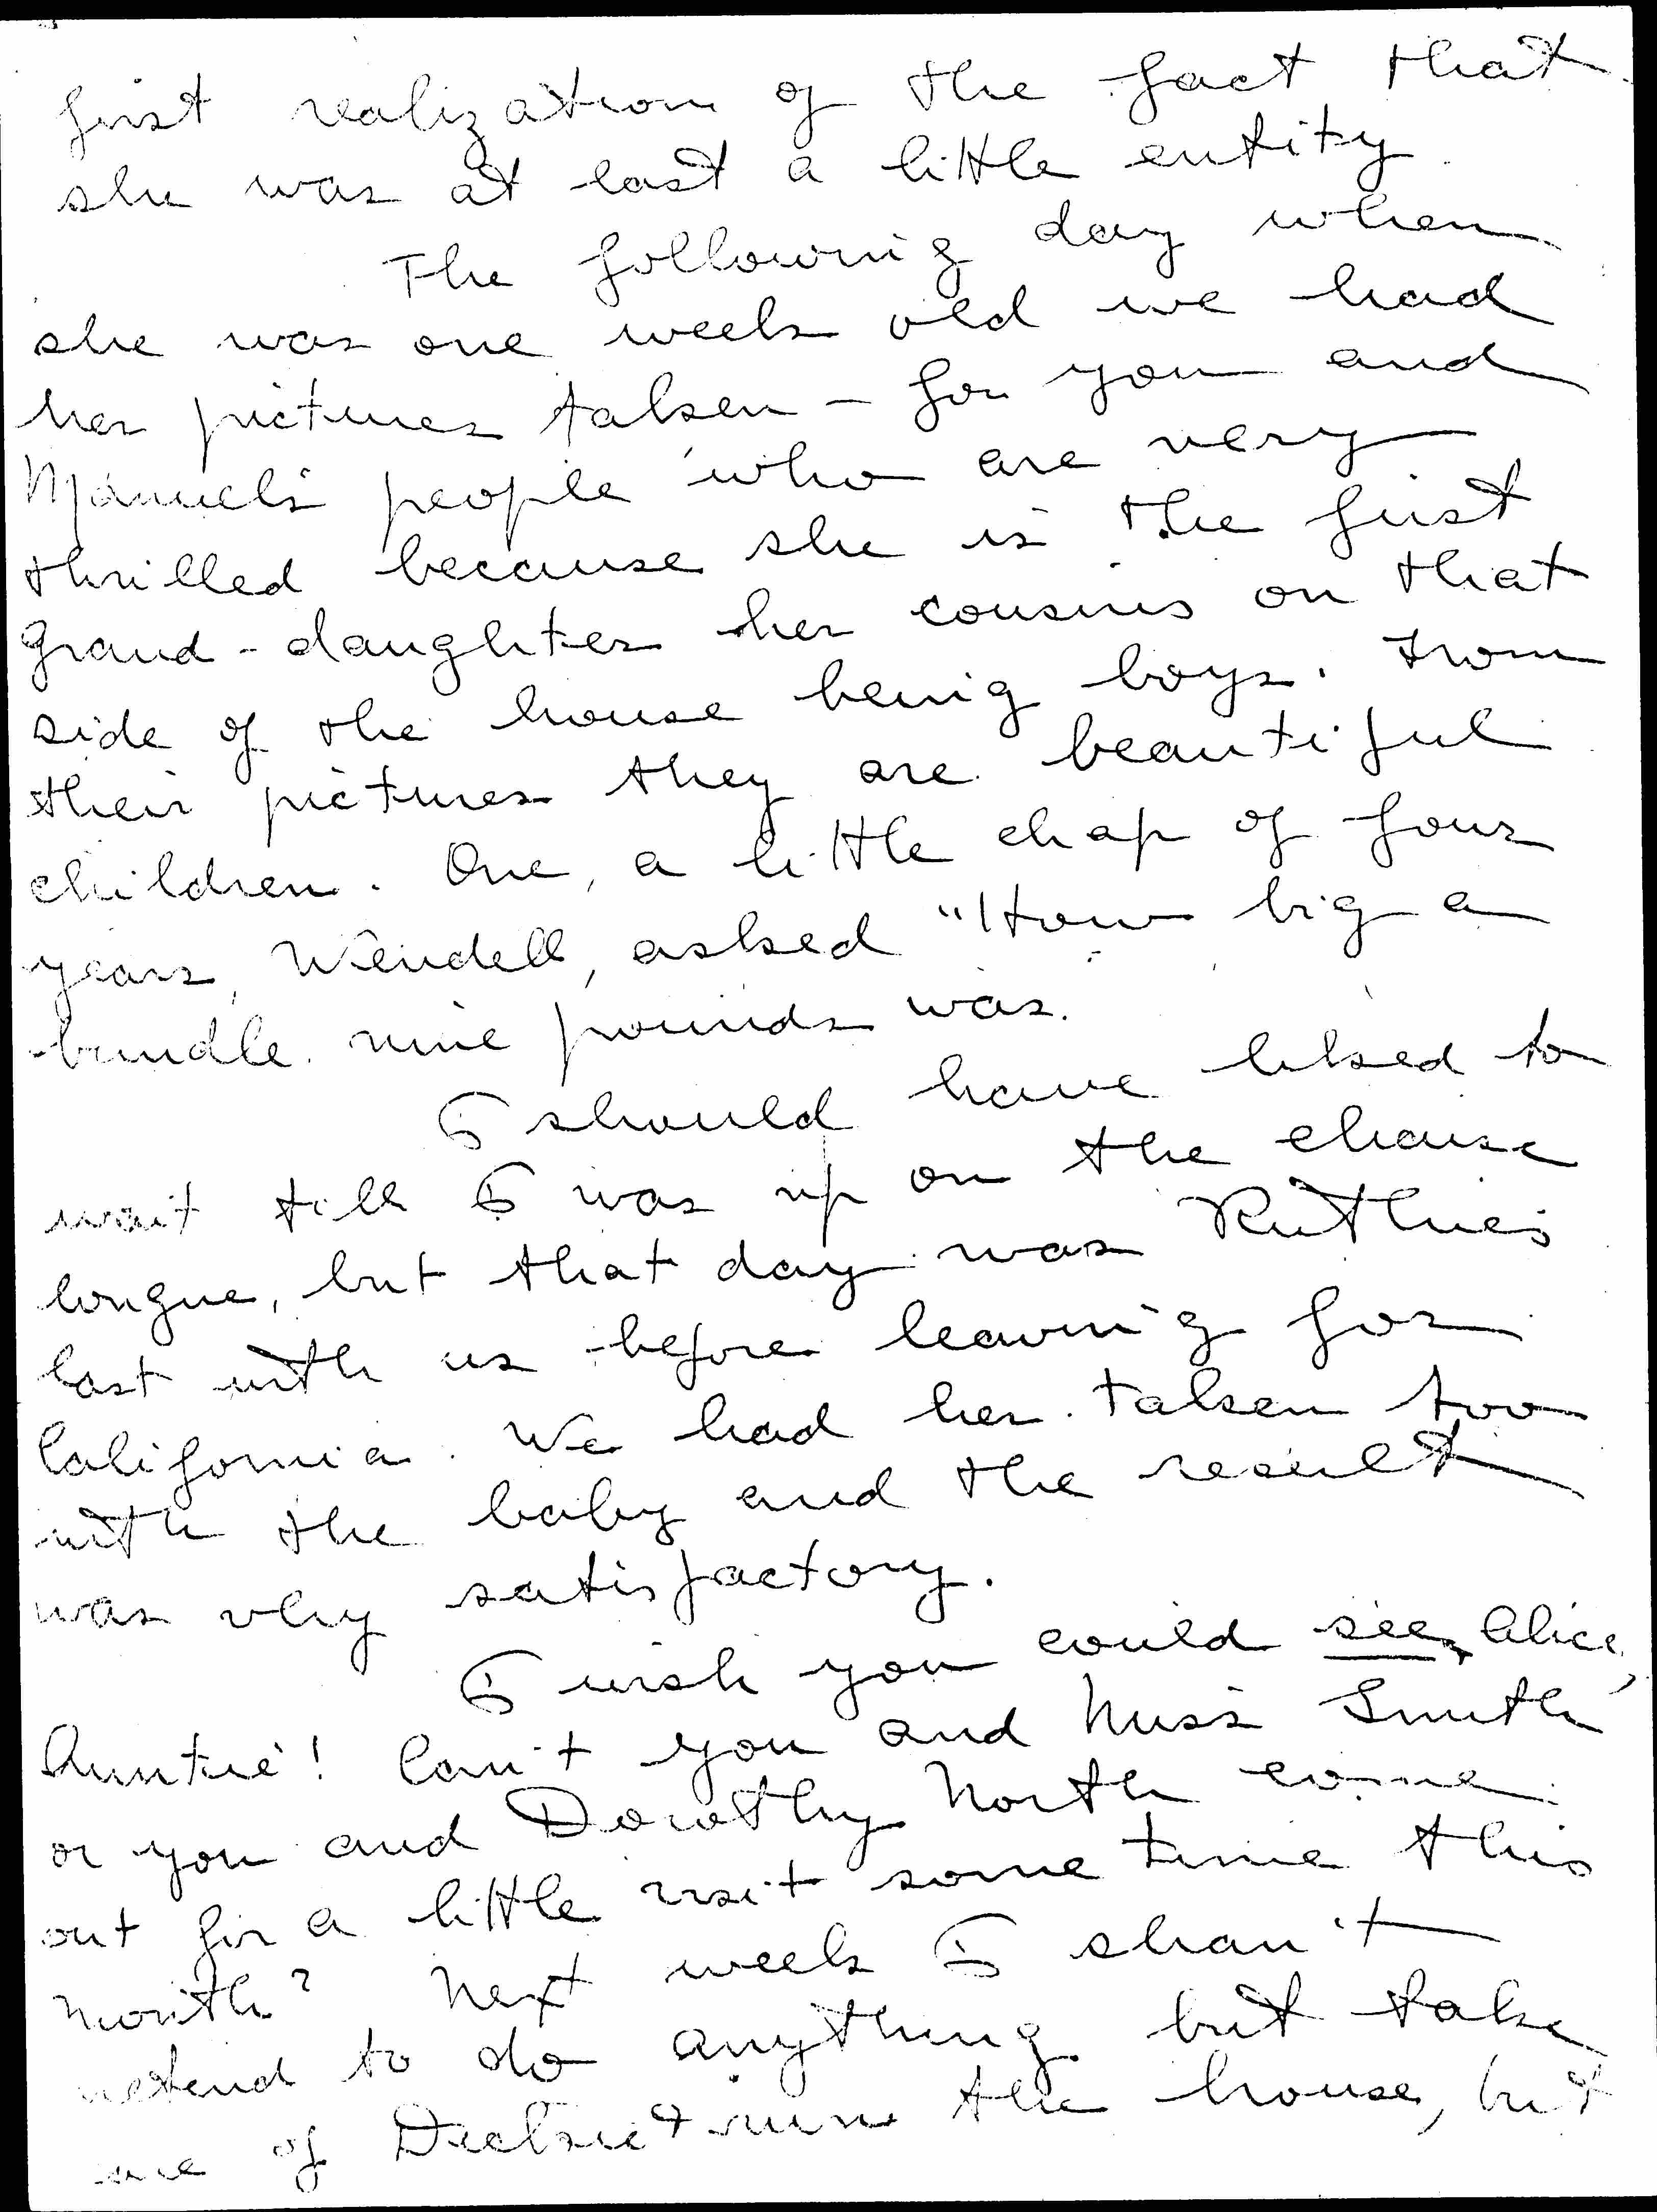 first realization of the fact that
she was at last a little entity.
The following day when
she was one week old we had
her pictures taken – for you and
Manuel's people who are very
thrilled because she is the first
grand-daughter her cousins on that
side of the house being boys. From
their pictures they are beautiful
children. One, a little chap of four
years, Wendell, asked "How big a
bundle nine pounds was.
I should have liked to
wait till I was up on the chaise
longue, but that day was Ruthie's
last with us before leaving for
California. We had her taken too
with the baby and the result
was very satisfactory.
I wish you could see Alice,
Auntie! Can't you and Miss Smith
or you and Dorothy North come
out for a little visit some time this
month? Next week I shan't
pretend to do anything but take
care of Dickie & run the house, but